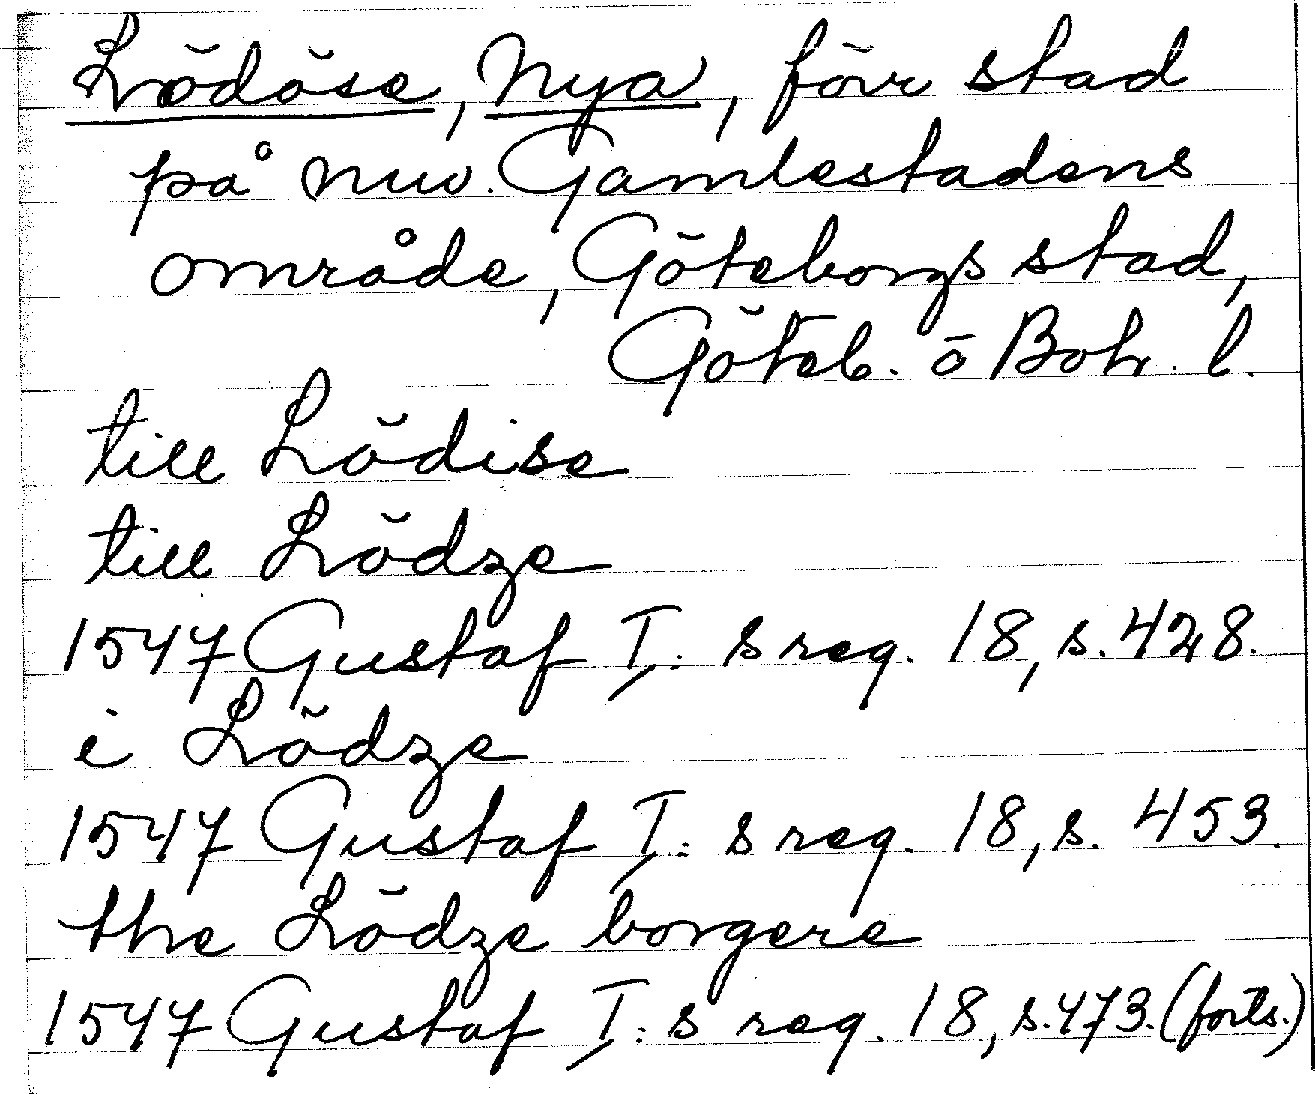 Lödöse, Nya, förr stad
på nuv. Gamlestadens
område, Göteborgs stad,
Göteb. o Boh. l.
till Lödise
till Lödze
1547 Gustaf I: s reg. 18, s. 428.
i Lödze
1547 Gustaf I: s reg. 18, s. 453.
the Lödze borgere
1547 Gustaf I: s reg. 18, s. 473. (forts.)